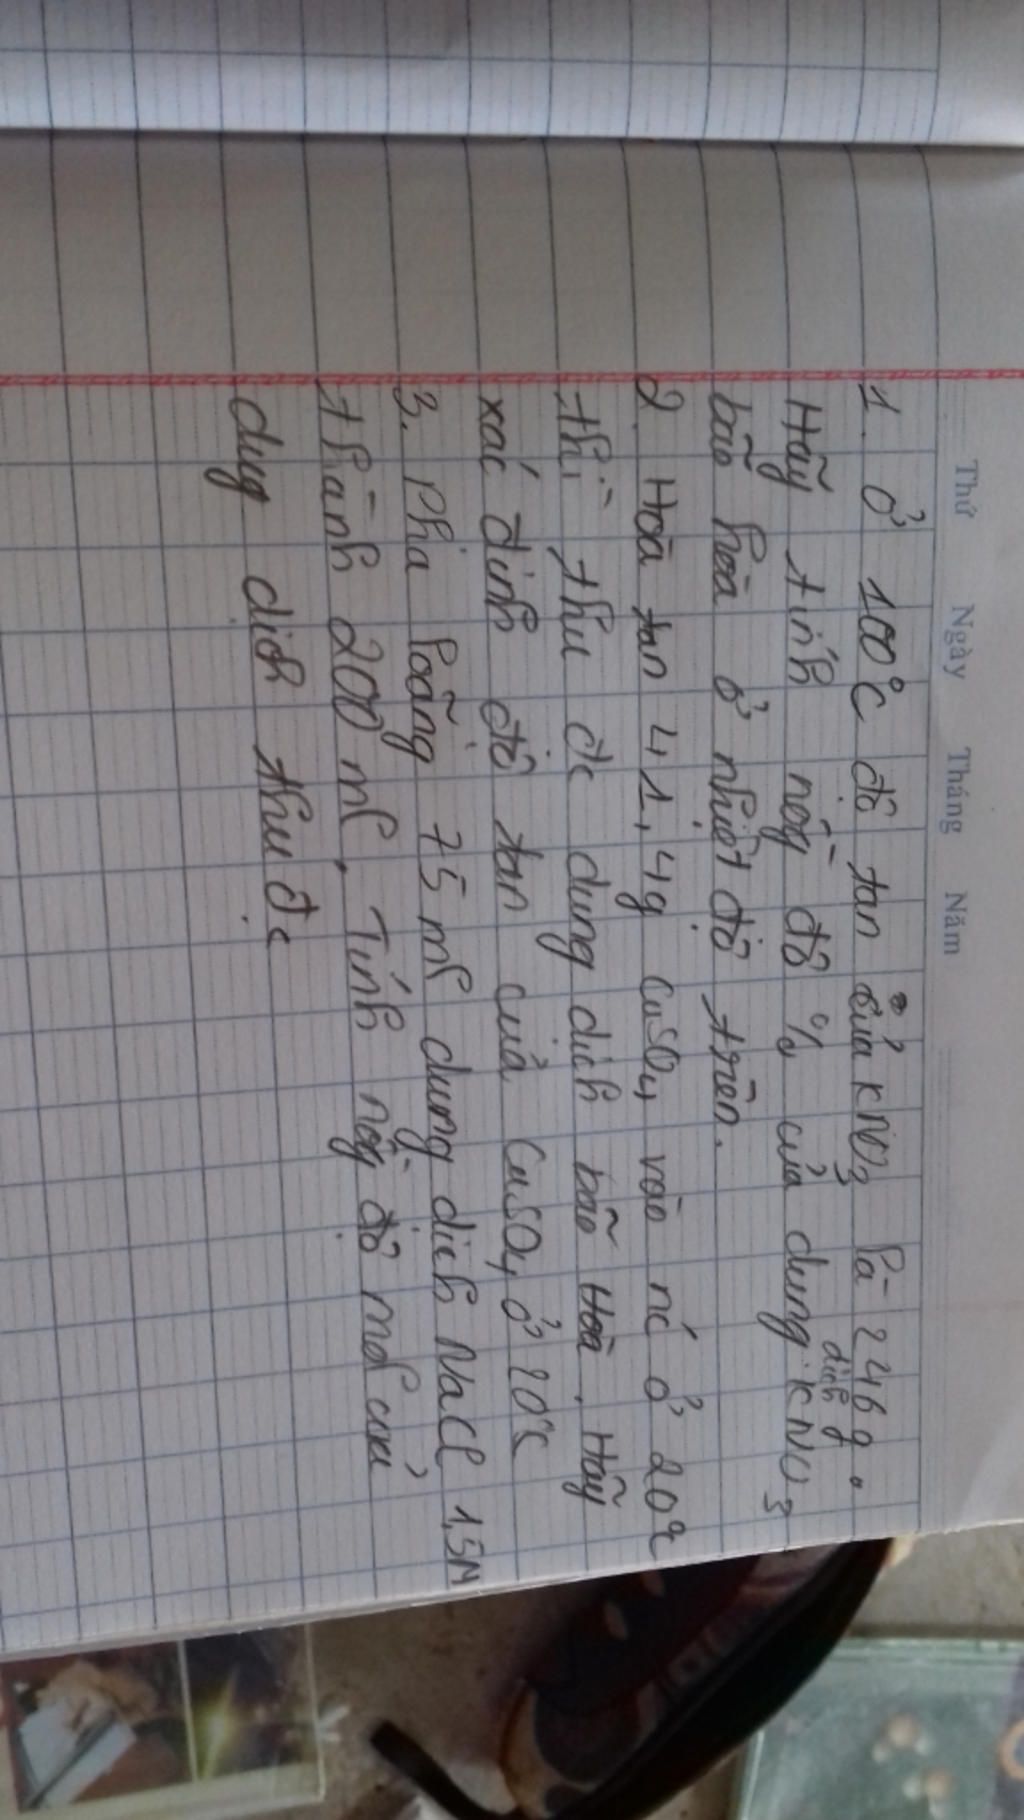 Thứ Ngày Tháng Năm
1. Ở 100°C độ tan của KNO3 là 246 g.
Hãy tính nồg độ % của dung dich KNO3
bão hoà ở nhiệt độ trên.
2. Hoà tan 41,4g CuSO4 vào nc ở 20°C
thì thu đc dung dich bão Hoà. Hãy
xác định độ tan của CuSO4 ở 20°C
3. Pha loãng 75 ml dung dich NaCl 1,5M
thành 200 ml. Tính nồg độ mol của
dug dịch thu đc